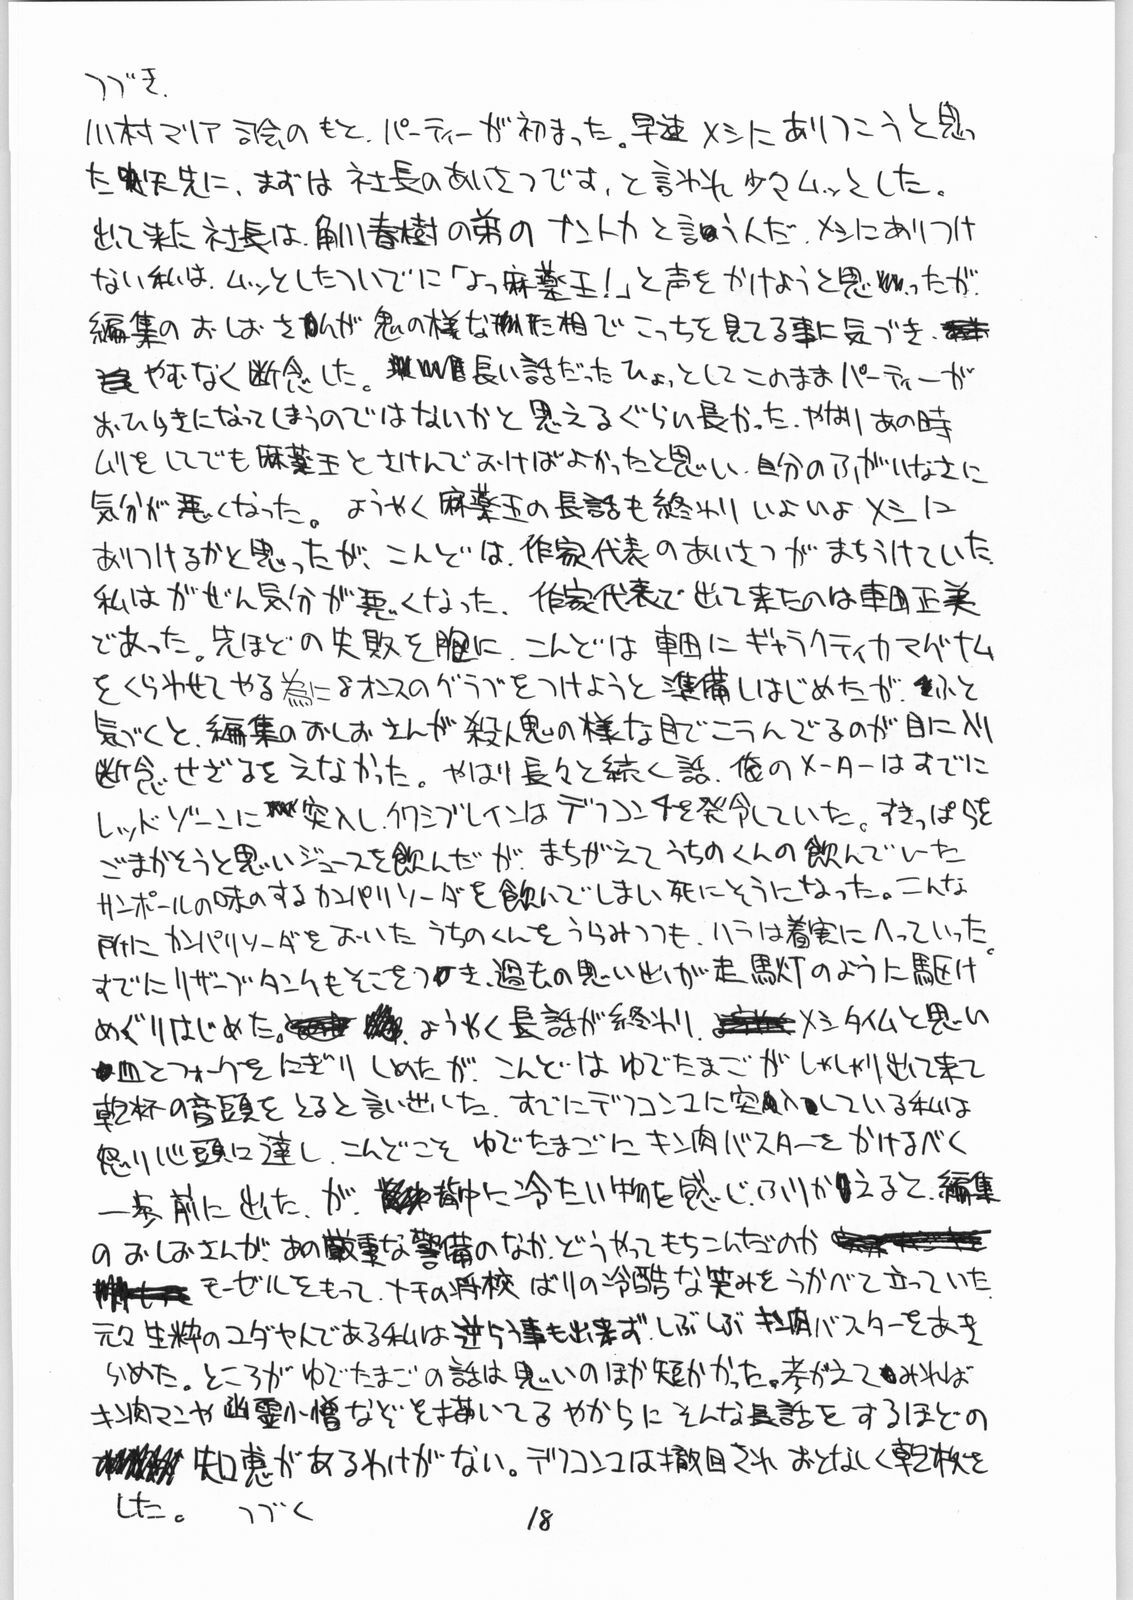 つづき.
川村マリア司会のもと、パーティーが初まった。早速メシにありつこうと思っ
た矢先に、まずは社長のあいさつです、と言われ少々ムッとした。
出て来た社長は、角川春樹の弟のナントカと言うんだ、メシにありつけ
ない私は、ムッとしたついでに「よっ麻薬王！」と声をかけようと思ったが、
編集のおしおさんが鬼の様な形相でこっちを見てる事に気づき、
やむなく断念した。長い話だったひょっとしてこのままパーティーが
おひらきになってしまうのではないかと思えるぐらい長かった、やはりあの時
ムリをしてでも麻薬王とさけんでおけばよかったと思い、自分のふがいなさに
気分が悪くなった。ようやく麻薬王の長話も終わりいよいよメシに
ありつけるかと思ったが、こんどは、作家代表のあいさつがまちうけていた
私はがぜん気分が悪くなった、作家代表で出て来たのは車田正美
であった。先ほどの失敗を胸に、こんどは車田にギャラクティカマグナム
をくらわせてやる為に8オンスのグラブをつけようと準備しはじめたが、ふと
気づくと、編集のおしおさんが殺人鬼の様な目でこうんでるのが目に入り
断念せざるをえなかった。やはり長々と続く話、俺のメーターはすでに
レッドゾーンに突入し、クワシブレインはデフコン4を発令していた。すきっぱらを
ごまかそうと思いジュースを飲んだが、まちがえてうちのくんの飲んでいた
サンポールの味のするカンパリソーダを飲んでしまい死にそうになった。こんな
所にカンパリソーダをおいたうちのくんをうらみつつも、ハラは着実にへっていった。
すでにリザーブタンクもそこをつき、過去の思い出が走馬灯のように駆け
めぐりはじめた。ようやく長話が終わり、メシタイムと思い
皿とフォークをにぎりしめたが、こんどはゆでたまごがしゃしゃり出て来て
乾杯の音頭をとると言い出した、すでにデフコン2に突入している私は
怒り心頭に達し、こんどこそゆでたまごにキン肉バスターをかけるべく
一歩前に出た、が、背中に冷たい物を感じ、ふりかえると、編集
のおしおさんが、あの厳重な警備のなか、どうやってもちこんだのか
モーゼルをもって、ナチの将校ばりの冷酷な笑みをうかべて立っていた
元々生粋のユダヤんである私は逆らう事も出来ず、しぶしぶキン肉バスターをあき
らめた。ところがゆでたまごの話は思いのほか短かかった。考がえてみれば
キン肉マンや幽霊小僧なぞを描いてるやからにそんな長話をするほどの
知恵があるわけがない。デフコン2は撤回されおとなしく乾杯を
した。　つづく
18